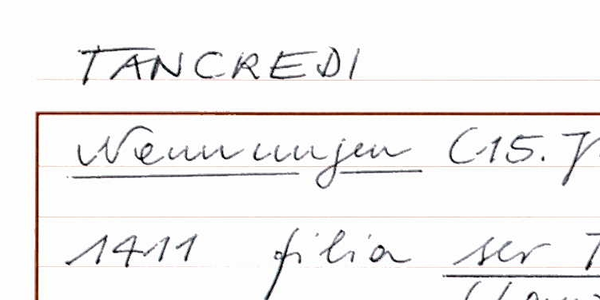 TANCREDI
Nennungen (15. J
1411 filia ser T